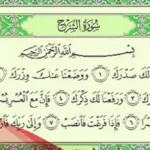 سُورَةُ الشَّرْحِ
بِسْمِ اللَّهِ الرَّحْمَٰنِ الرَّحِيمِ
لَكَ صَدْرَكَ ١ وَوَضَعْنَا عَنكَ وِزْرَكَ
وَرَفَعْنَا لَكَ ذِكْرَكَ ٤ فَإِنَّ مَعَ الْعُسْرِ
فَإِذَا فَرَغْتَ فَانصَبْ ٧ وَإِلَىٰ رَبِّكَ